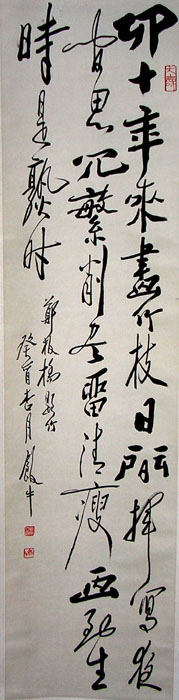 四十年來畫竹枝日間揮寫夜
間思冗繁削盡留清瘦畫到生
時是熟時
鄭板橋題竹
癸酉杏月